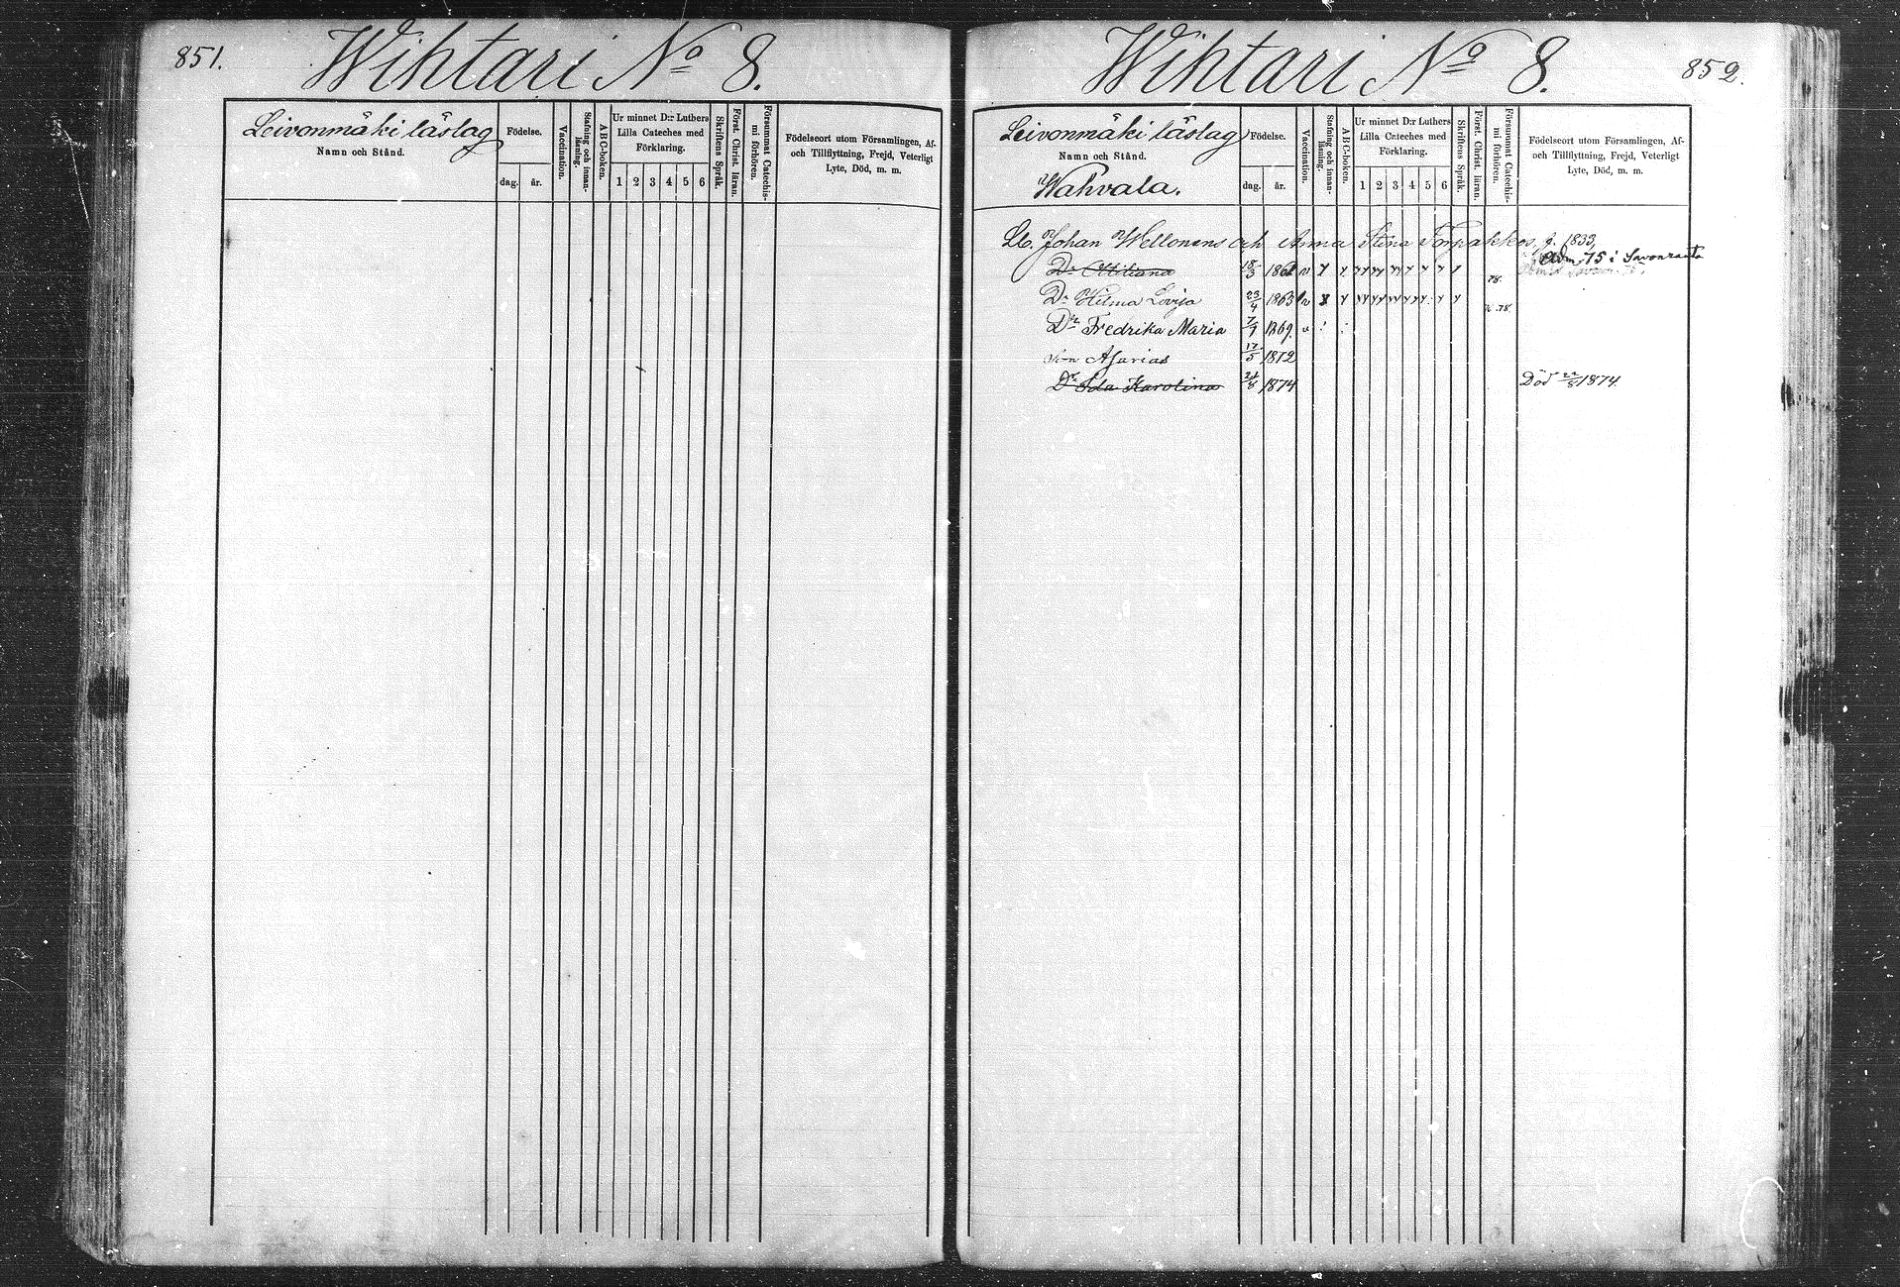 851.
Wihtari No 8.
Leivonmäki läslag
Namn och Stånd.
Födelse.
dag. år.
Vaccination.
Stafning och innan-
läsning.
ABC-boken.
Ur minnet D:r Luthers
Lilla Cateches med
Förklaring.
1 2 3 4 5 6
Skriftens Språk.
Först. Christ. läran.
Försummat Catechis-
mi förhören.
Födelseort utom Församlingen, Af-
och Tillflyttning, Frejd, Veterligt
Lyte, Död, m. m.
Wihtari No 8.
852.
Leivonmäki läslag
Namn och Stånd.
Wahvala.
Födelse.
dag. år.
Vaccination.
Stafning och innan-
läsning.
ABC-boken.
Ur minnet D:r Luthers
Lilla Cateches med
Förklaring.
1 2 3 4 5 6
Skriftens Språk.
Först. Christ. läran.
Försummat Catechis-
mi förhören.
Födelseort utom Församlingen, Af-
och Tillflyttning, Frejd, Veterligt
Lyte, Död, m. m.
Johan Wellonens och Anna Stina f. 1833,
Dr 18/3 Adm. 75 i Savonranta
78.
Dr Hilma Lovisa 23/4 1863
78.
Dr Fredrika Maria 7/7 1869.
son Asarias 17/5 1872
Dr Ida Karolina 1874 Död 22/8 1874.